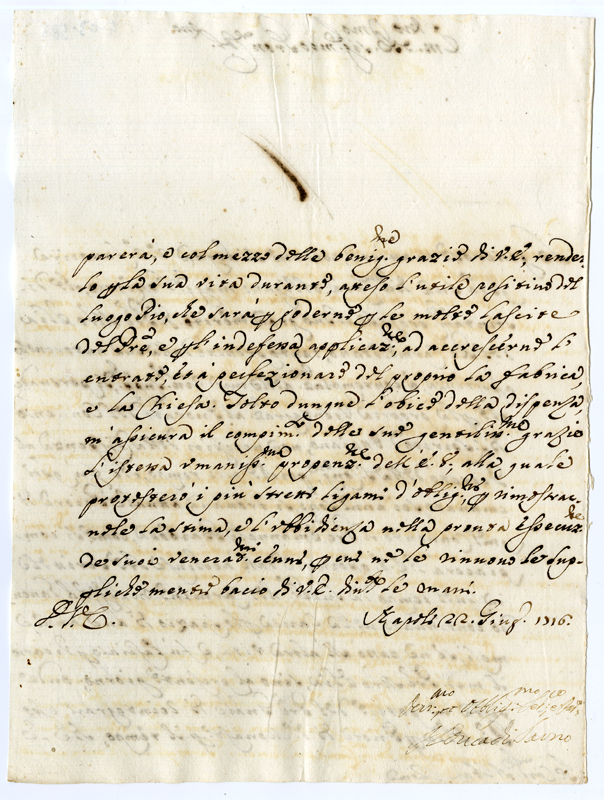 parerà, e col mezzo delle benig.me grazie di V.E., render
lo p la sua vita durante, atteso l'utile positivo del
luogo Pio, che sarà p goderne p le molte lascite
del Pre, e p l'indefessa applicaz.ne, ad accrescerne l'
entrate, et à perfezionare del proprio la fabrica,
e la Chiesa. Tolto dunque l'obice della dispensa,
m'assicura il compim.to delle sue gentiliss.me grazie
l'istessa umaniss.ma propenz.ne dell'E.V., alla quale
protesterò i più stretti ligami d'oblig.ni p rimostrar-
nele la stima, e l'obbidienza nella pronta essecuz.ne
de suoi venerat.mi cenni, p cui ne le rinuovo le sup-
pliche mentre bacio di V.E. div.te le mani.
Napoli 22. Giug. 1716.